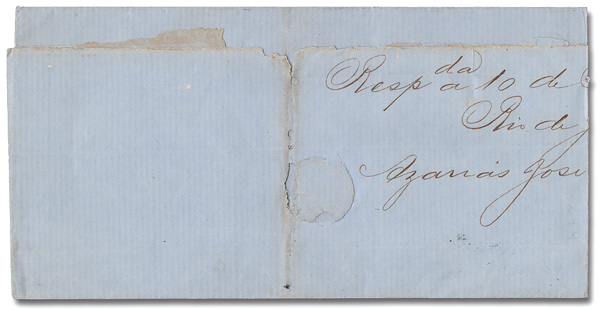 Respda a 10 de
Rio de J
Azarias José